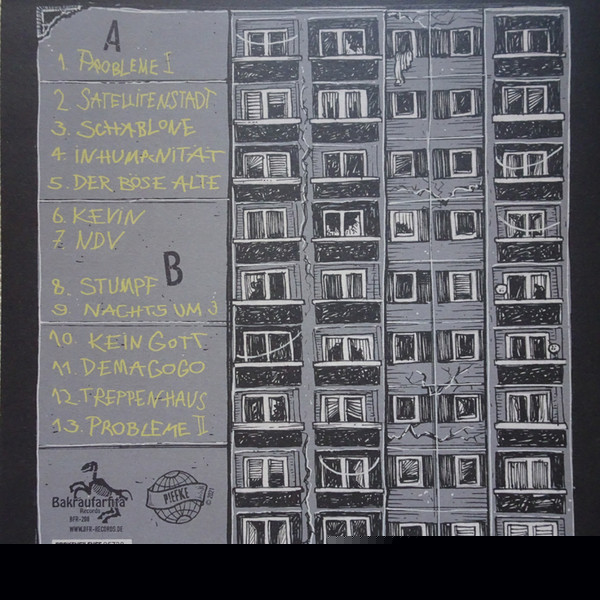 A
1. PROBLEME I
2 SATELLITENSTADT
3. SCHABLONE
4. INHUMANITÄT
5. DER BÖSE ALTE
6. KEVIN
7 NDV
B
8. STUMPF
9. NACHTS UM 3
10. KEIN GOTT
11. DEMAGOGO
12. TREPPENHAUS
13. PROBLEME II
Bakraufarfita
Records
BFR-208
WWW.BFR-RECORDS.DE
PIEFKE
© 2021